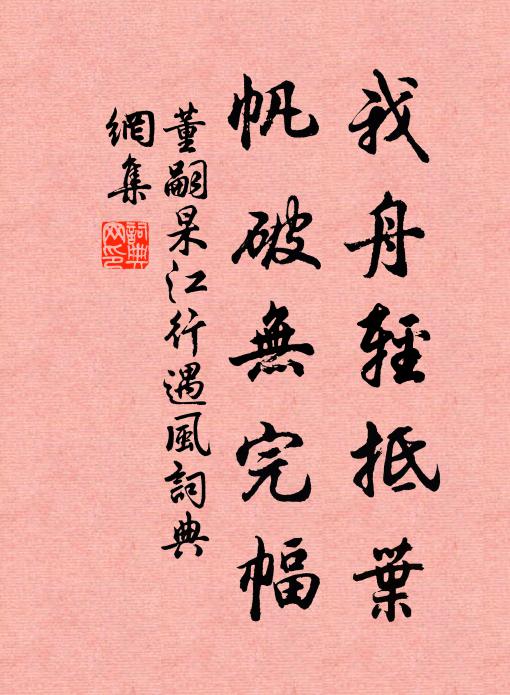 我舟輕抵葉
帆破無完幅
董嗣杲江行遇風詞典
網集
詞典
网印